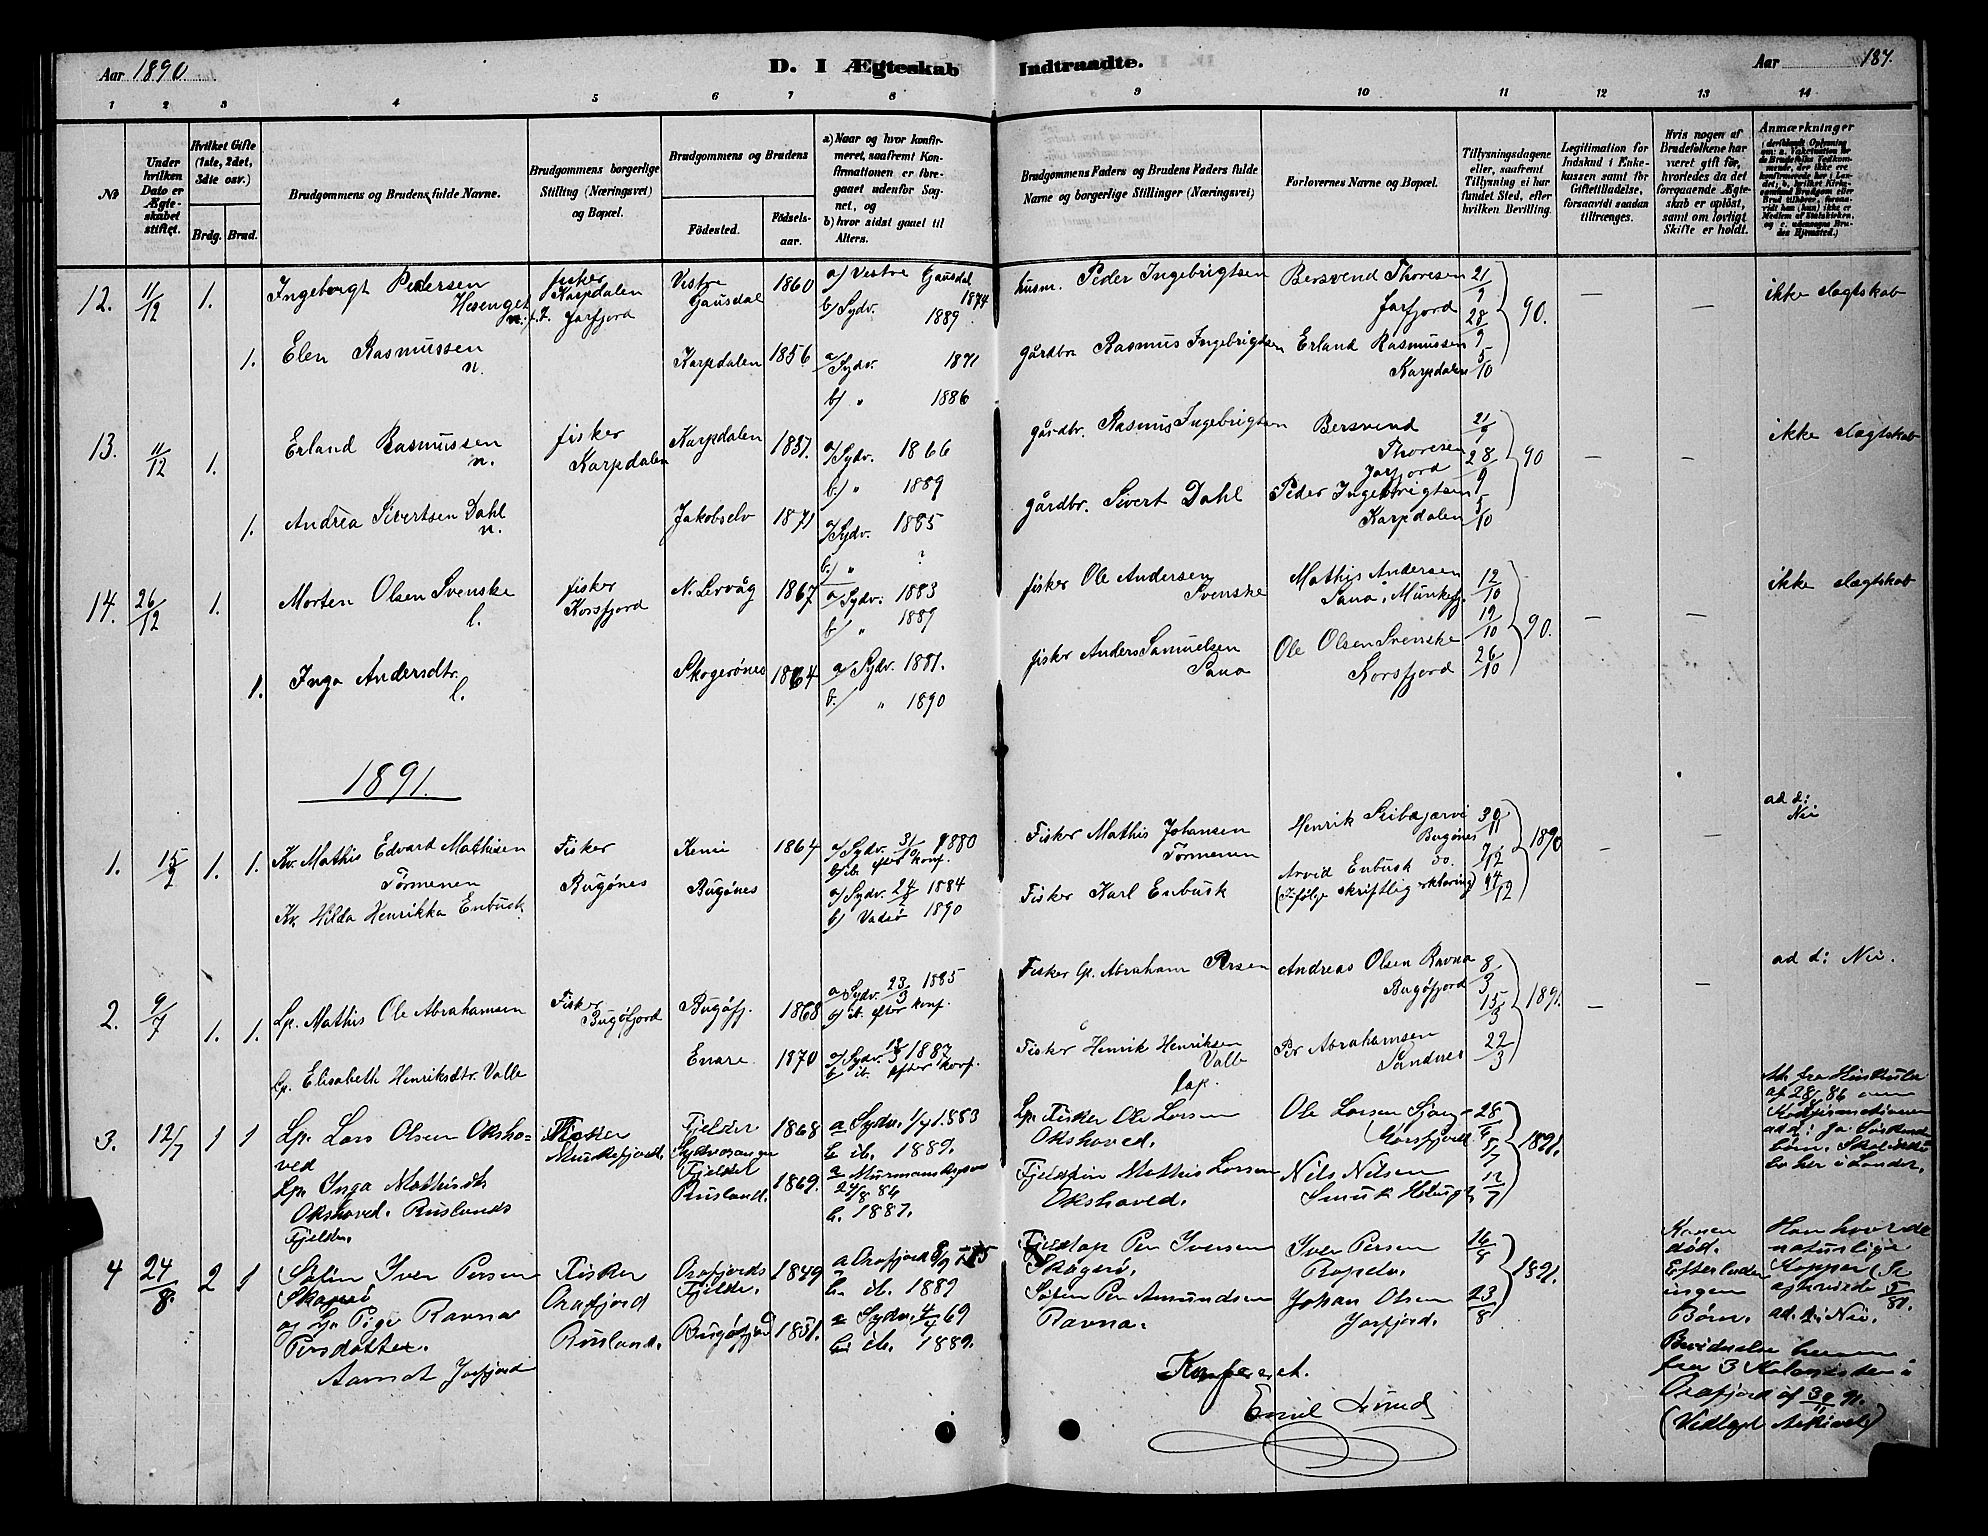 Aar 1890.
D. I Ægteskab Indtraadte.
Aar 187.
1 2 3 4 5 6 7 8 9 10 11 12 13 14
№
Under hvilken Dato er Ægteskabet stiftet.
Hvilket Gifte (1ste, 2det, 3die osv.)
Brdg. Brud.
Brudgommens og Brudens fulde Navne.
Brudgommens borgerlige Stilling (Næringsvei) og Bopæl.
Brudgommens og Brudens
Fødested.
Fødselsaar.
a) Naar og hvor konfirmeret, saafremt Konfirmationen er foregaaet udenfor Sognet, og
b) hvor sidst gaaet til Alters.
Brudgommens Faders og Brudens Faders fulde Navne og borgerlige Stillinger (Næringsvei)
Forlovernes Navne og Bopæl.
Tillysningsdagene eller, saafremt Tillysning ei har fundet Sted, efter hvilken Bevilling.
Legitimation for Indskud i Enkekassen samt for Giftetilladelse, forsaavidt saadan tiltrænges.
Hvis nogen af Brudefolkene har været gift før, hvorledes da det foregaaende Ægteskab er opløst, samt om lovligt Skifte er holdt.
Anmærkninger
12. 11/12 1. Ingebregt Pedersen Hesenget n. fisker Karpdalen p. T. Jarfjord Vestre Gausdal 1860 a/ Vestre Gausdal 1874 b/ Sydv. 1889 husm. Peder Ingebrigtsen Bersvend Thoresen Jarfjord 21/9 28/9 5/10 90. – – ikke slægtskab
1. Elen Rasmussen n. Karpdalen 1856 a/ Sydv. 1871 b/ " 1886 gårdbr Rasmus Ingebrigtsen Erland Rasmussen Karpdalen
13. 11/12 1. Erland Rasmussen n. fisker Karpdalen Karpdalen 1851. a/ Sydv. 1866 b/ " 1889 gårdbr. Rasmus Ingebrigtsen Bersvend Thoresen Jarfjord 21/9 28/9 5/10 90 – – ikke slægtskab
1. Andrea Sivertsen Dahl n. Jakobselv 1871 a/ Sydv. 1885 b/ " ? gårdbr. Sivert Dahl Peder Ingebrigtsen Karpdalen
14. 26/12 1. Morten Olsen Svenske l. fisker Korsfjord N. Lervåg 1867 a/ Sydv. 1883 b/ " 1889 fisker Ole Andersen Svenske Mathis Andersen Sana, Munkefj. 12/10 19/10 26/10 90. – – ikke slægtskab
1. Inga Andersdtr. l. Skogerønes 1864 a/ Sydv. 1881. b/ " 1890 fisker Anders Samuelsen Sana Ole Olsen Svenske Korsfjord
1891.
1. 15/2 1. 1. Kv. Mathis Edvart Mathisen Törmenen Fisker Bugönes Kemi 1864 a/ Sydv. 31/10 1880 b/ ib. efter konf. Fisker Mathis Johansen Törmenen Henrik Seibajarvi Bugönes 30/11 7/12 14/12 1890 – – ad d: Nei
Kv. Hilda Henrikka Enbusk Bugönes a/ Sydv. 24/2 1884 b/ Vadsø 1890 Fisker Karl Enbusk Arvid Enbusk do. (Ifølge skriftlig erklæring)
2. 9/7 1. 1. Lp. Mathis Ole Abrahamsen Fisker Bugöfjord Bugöfj. 1868 a/ Sydv. 23/3 1885 b/ ib. efter konf. Fisker Lp. Abraham Persen Andreas Olsen Ravna Bugöfjord 8/3 15/3 22/3 1891. – – ad d: Nei.
Lp. Elisabeth Henriksdtr. Valle Enare 1870 a/ Sydv. 1887 b/ ib. efter konf. Fisker Henrik Henriksen Valle lap. Per Abrahamsen Sandnes
3. 12/7 1 1. Lp. Lars Olsen Okshoved Fisker Munkefjord. Fjeldet Sydvaranger 1868 a Sydv. b. ib. 1889. Lp. Fisker Ole Larsen Okshoved. Ole Larsen Korsfjord 28/6 5/7 12/7 1891.
Lp. Inga Mathisdtr. Okshoved. Ruslands Fjelde. Fjeldet Rusland. 1869. 24/8 86 b. 1887. Mathis Larsen Okshoved. Nils Nilsen
4 24/8. 2 1 Iver Persen Fisker Orafjord Rusland. Orafjords Fjelde. 1849 a Orafjord b. ib. 1889 Fjeldlap Per Iversen Skögerö. Iver Persen 16/8 23/8 1891. Konen død. Efterlader ingen Børn.
og Lp. Pige Ravna Persdatter. Bugöfjord 1851. a Sydv. 4/4 69 b. ib. 1889. Per Amundsen Ravna. Johan Olsen Jarfjord. ad. d: Nei.
Jarfjord
Konfereret.
Emil Lund